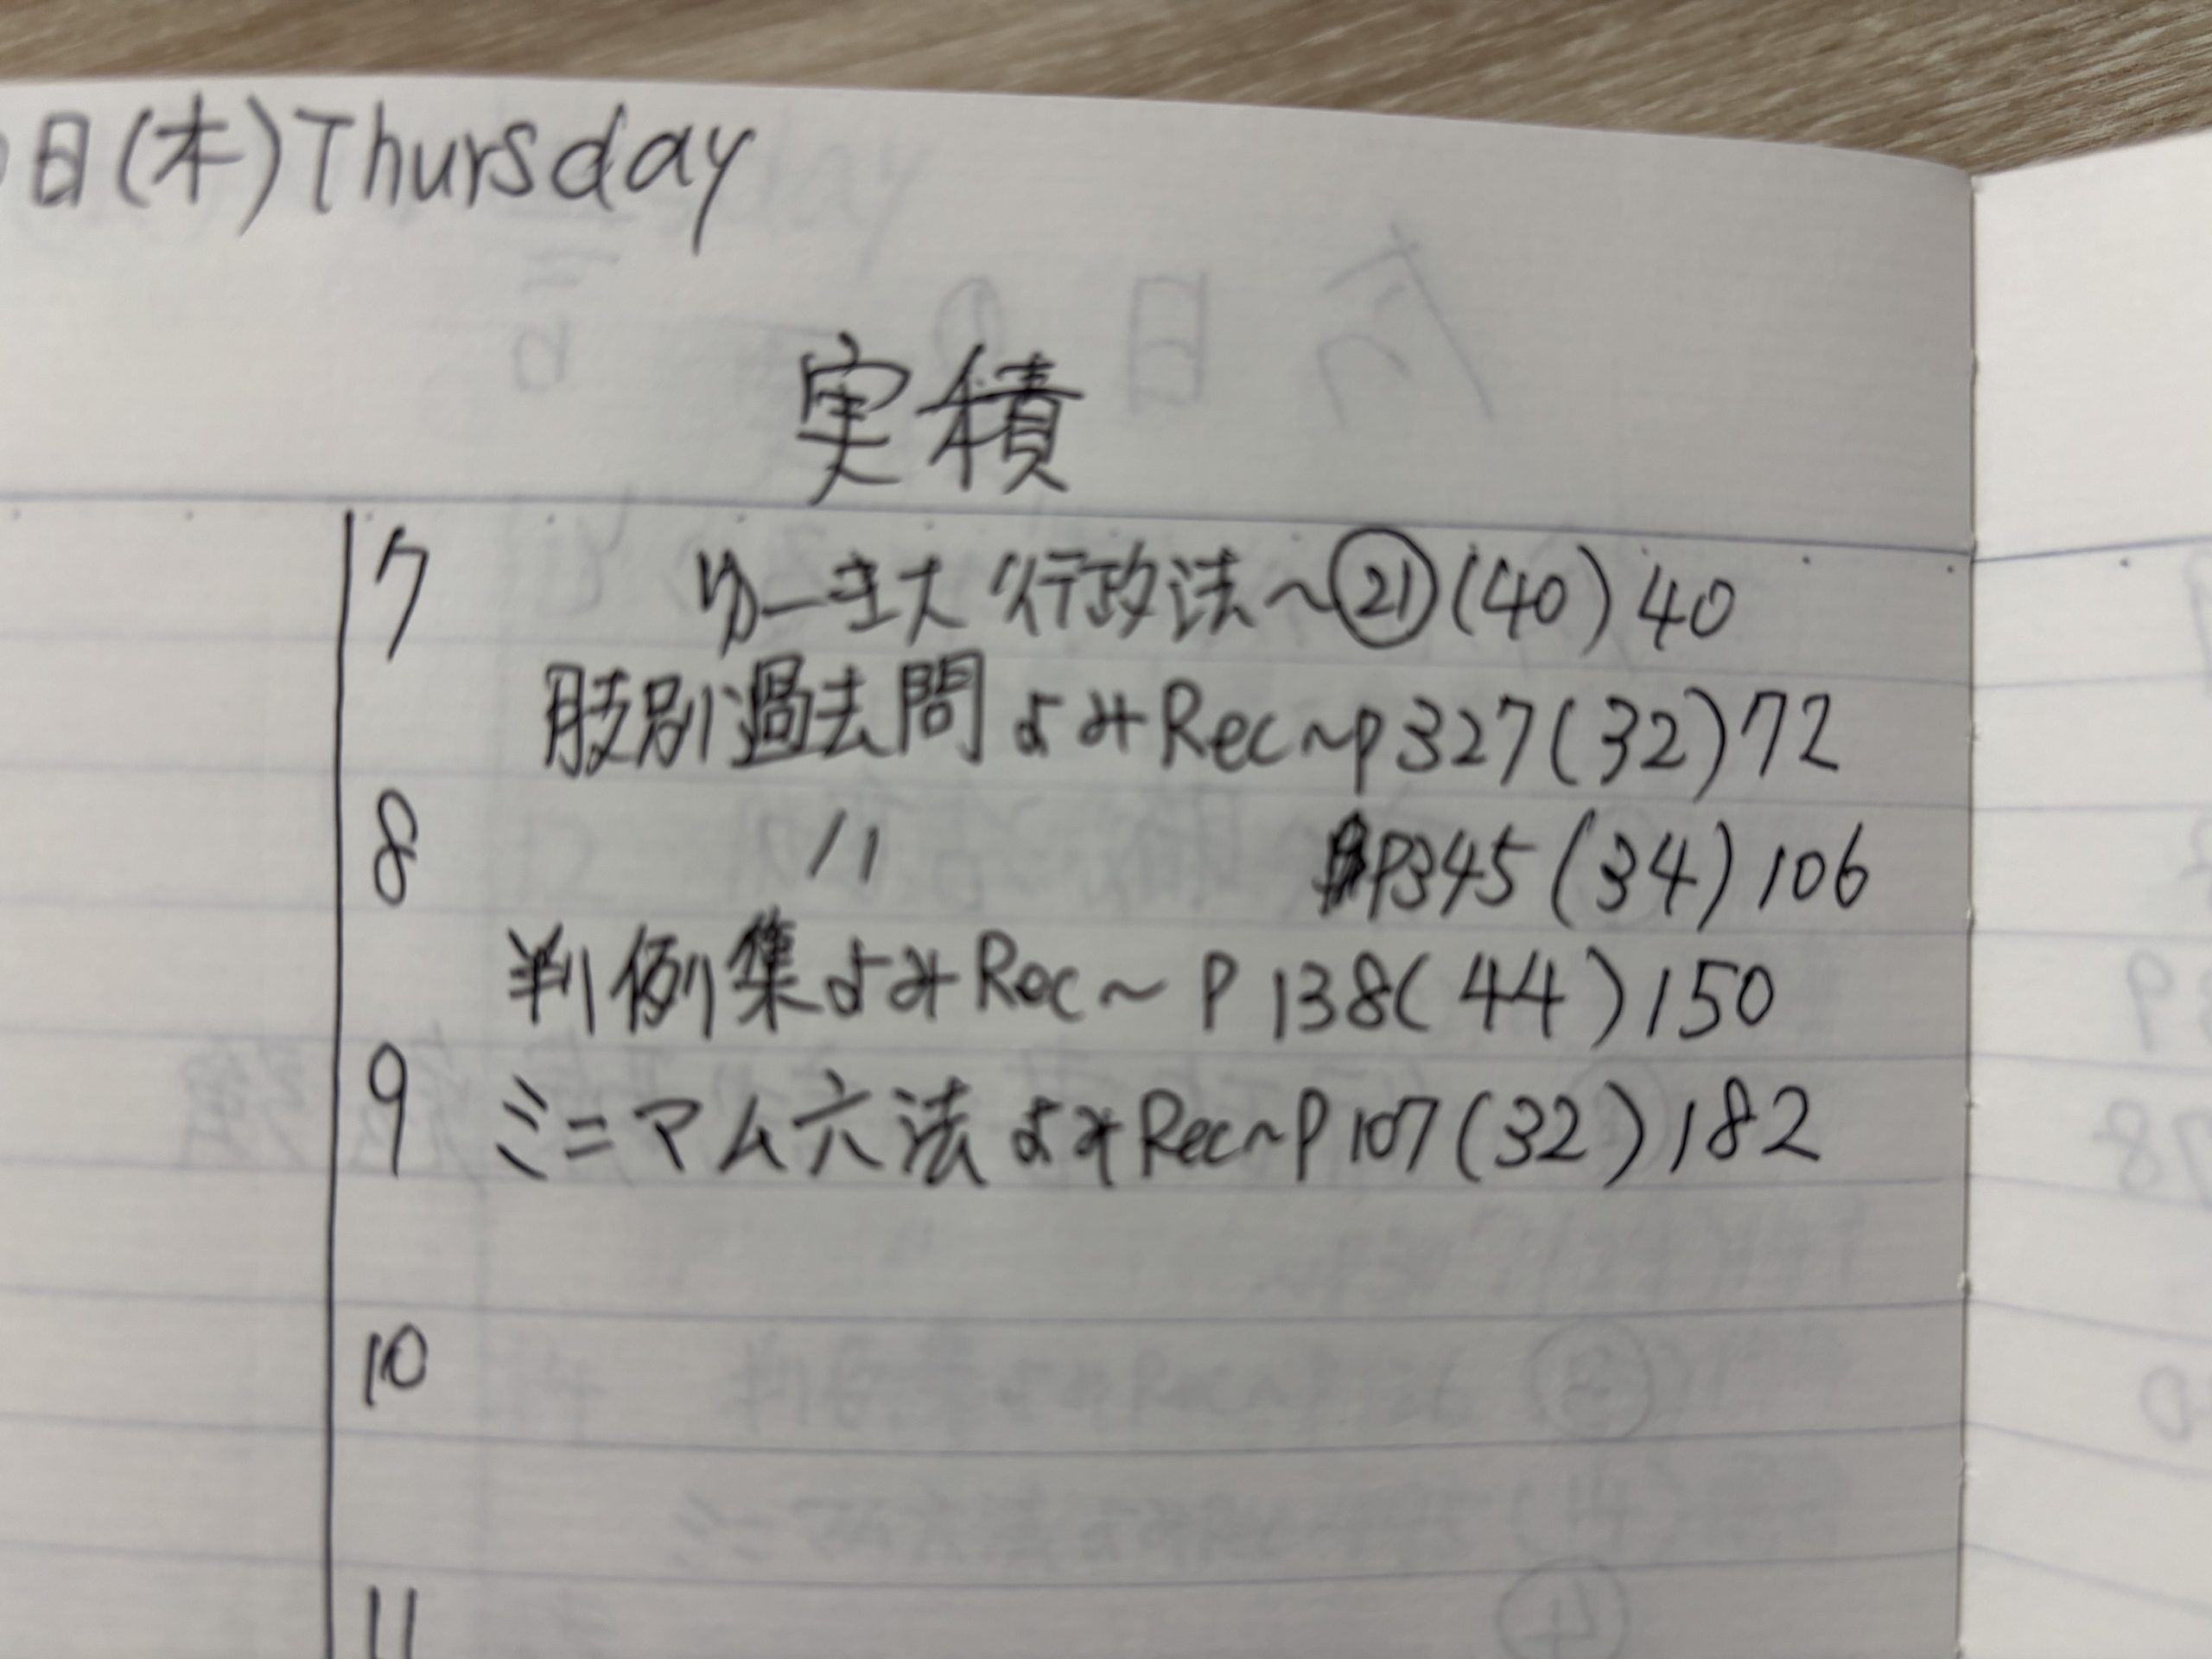 日(木)Thursday
実積
7 ゆーき大 行政法~㉑(40)40
肢別過去問よみRec~p327(32)72
8 〃 P345(34)106
判例集よみRec~P138(44)150
9 ミニマム六法よみRec~P107(32)182
10
11